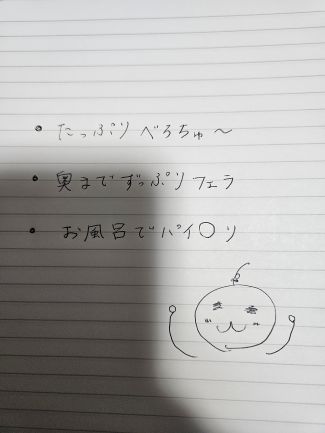 ・たっぷりべろちゅ〜
・奥までずっぷりフェラ
・お風呂でパイ〇リ